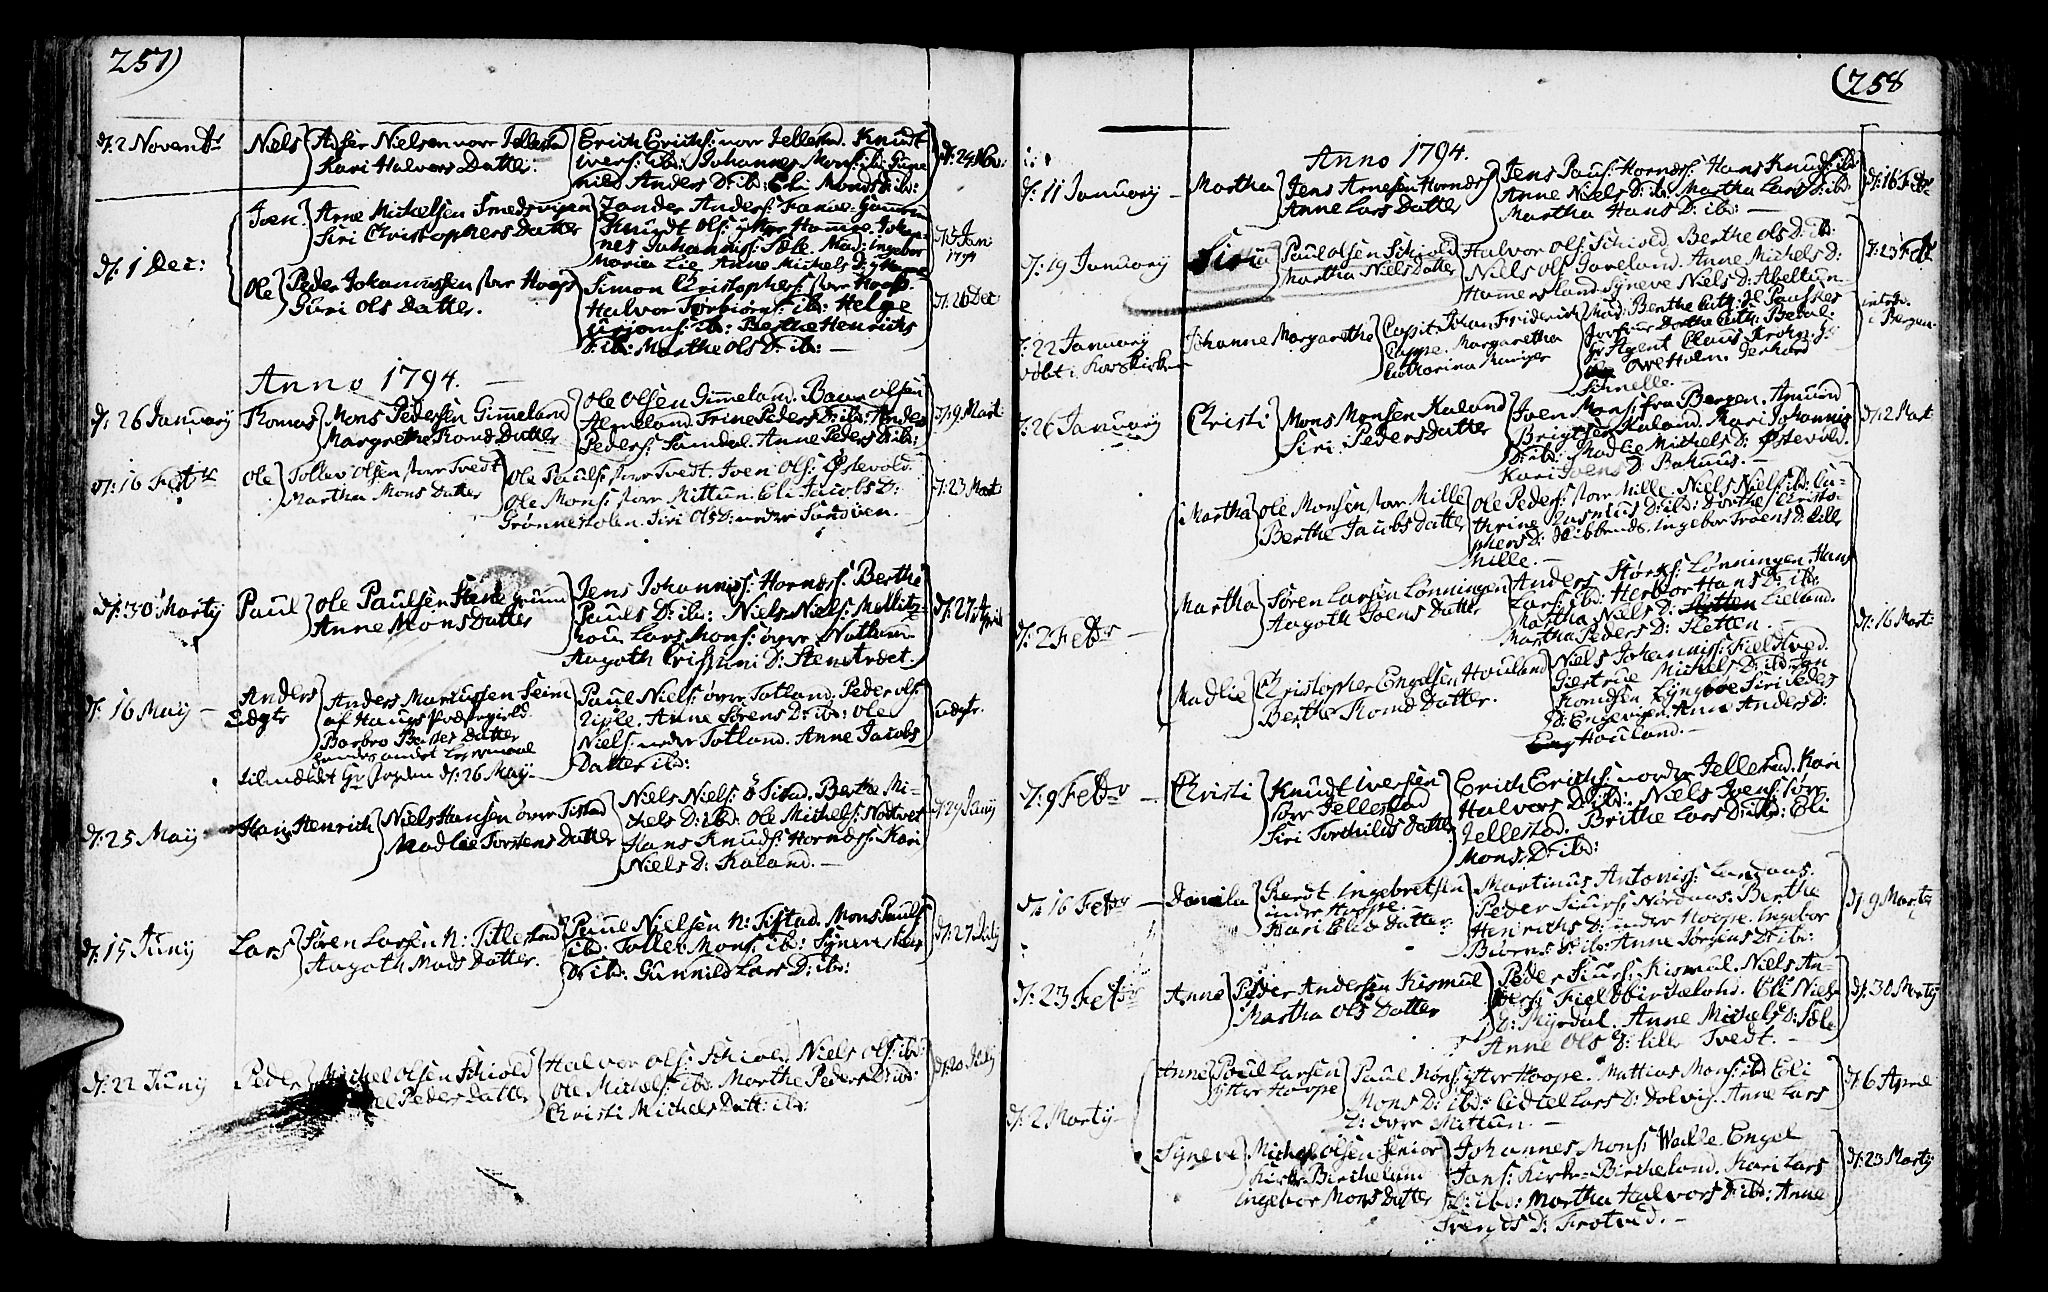 257)
d: 2 Novembr
Niels
Asser Nielsen norr Jellestad
Kari Halvers Datter.
Erich Erichs: norr Jellestad. Knudt
ivers: ibd: Johannes Mons: ib: Gune
nild Anders D: ib: Eli Monds D: ib:
d: 24 Nov:
d: 1 Dec:
Joen
Arne Mickelsen Smedsvigen
Siri Christophers Datter
Zander Anders: Fanøe-Hammer
Knudt Ols: ytter Hamme. Johan-
nes Johanniss: Sæle. Mad: ingebor
Maria Lie Anne Michels D: ytter
d: 5 Jan:
1794
Ole
Peder Johannessen storr Hoop
Guri Ols Datter.
Simon Christophers: storr Hoop.
Halvor Torbiørns: ib: Helge
ib: Berthe Henrichs
D: ib: Marthe Ols D: ib: —
d: 26 Dec
Anno 1794. —
d: 26 January
Thomas
Mons Pedersen Gimeland
Margrethe Romd Datter
Ole Olsen Gimeland. Baar Olsen
Aerneland. Trine Peders D: ib: Anders
Peders: Sandal. Anne Peders D: ib:
d: 9 Mart
d: 16 Febr
Ole
Tollev Olsen storr Tvedt
Martha Mons Datter
Ole Pauls: storr Tvedt. Joen Ols: Østevold.
Ole Mons: storr Mittun. Eli Jacobs D:
Grønnestolen. Siri Ols D: nedre Sandven.
d: 23 Mart
d: 30 Marty
Paul
Ole Paulsen Stene grum
Anne Mons Datter
Jens Johanniss: Hornæss: Berthe
Pauls D: ib: Niels Niels: Mellitz-
hou Lars Mons: øvre Natland
Aagoth Crispini D: Stenstrædet.
d: 27 April
d: 16 May —
Anders
Ædgtr
Anders Markussen Seim
af Haugs Præstegield
Barbro Basses Datter
hendes andet Leyermaal
tilmældt Hr. fogden d: 26 Maij
Paul Niels: øvre Totland. Peder Ols:
Riple. Anne Sørens D: ib: Ole
Niels: nedre Totland. Anne Jacobs
Datter ibd:
uægtr.
d: 25 Maij
Hans Henrich
Niels Hansen øvre Tistad
Madlee Torstens Datter
Niels Niels: ö Tistad. Berthe Mi-
chels D: ibd: Ole Michels: Nøttvet
Hans Knuds: Hornæss: Kari
Niels D: Kaland. —
d: 29 Junij
d: 15 Juny
Lars
Søren Larsen N: Titlestad
Aagoth Mads Datter.
Paul Nielsen N: Tistad. Mons Pauls:
ibd: Tolle Mons: ib: Synneve Lars
D: ib: Gunnild Lars D: ibd:
d: 27 July
d: 22 Juny
Peder
Michel Olsen Schiold
Peders Datter
Halvor Ols: Schiold. Niels Ols: ibd:
Ole Michels: ibd. Marthe Peders D: ibd:
Christi Michels Datt: ibd:
d: 20 July
(258
Anno 1794.
d: 11 January —
Martha
Jens Arnesen Hornæss
Anne Lars Datter
Jens Pauls: Hornæss: Hans Knuds: ibd
Anne Niels D: ib: Martha Lars D: ibd
Martha Hans D: ibd: —
d: 16 Febr
d: 19 January
Siri
Paul Olsen Schiold
Martha Niels Datter
Halvor Ols: Schiold. Berthe Ols D: ib:
Niels Ols: Javeland. Anne Michels D:
Hamersland. Syneve Niels D: Abeltun
d: 23 Febr
d: 22 January
døbt i Korskirken
Johanne Margarethe
Capit: Johan Friderich
Cappe. Margaretha
Catharina Kariger
Mad: Berthe Cath: Hl Pauskes
Jomfrue Dorthe Cath: Bedal:
Hr Agent Claus Krohn. Hr
Ove Holm. Gerhard
Schnelle. —
introd.
i Bergen
d: 26 January
Christi
Mons Monsen Kaland
Siri Peders Datter
Joen Mons: fra Bergen. Amund
Brigtsen Kaland. Kari Johannis
D: ibd: Madlie Michels D: Østevold.
Kari Joens D: Bahuus. —
d: 2 Mart
d: 2 Febr —
Martha
Ole Monsen storr Mille
Berthe Jacobs Datter
Ole Peders: storr Mille. Niels Niels: ibd: Ca-
thrine Rasmus D: ibd: Dorthe Christo-
phers D: Ingebor Troens D: lille
Mille. —
Martha
Søren Larsen Lønningen
Aagoth Joens Datter
Anders Størks: Lønningen. Hans
Lars: ibd: Herbor Hans D: ib:
Martha Niels D: Lieland.
Martha Peders D: Sletten. —
d: 16 Mart:
Madlie
Christopher Engelsen Houland
Berthe Romd Datter.
Niels Johanniss: Fieldtved.
Giertrue Michels D: ibd: Jan
Romdsen Lyngbøe Siri Peders
D: Engevigen. Anne Anders D:
Houland. —
d: 9 Febr —
Christi
Knudt iversen
sørr Jellestad
Siri Torchilds Datter
Erich Erichs: nordre Jellestad. Kari
Halvers D: ibd: Niels Ivers: sørr
Jellestad. Brithe Lars D: ibd: Eli
Mons D: ibd:
d: 16 Febr —
Daniela
Reedt ingebretsen
indre Hoope. —
Kari Elis Datter.
Martinus Antoniss: Landaas.
Peder Siurs: Nordnæs. Berthe
Henrichs D: indre Hoope. Ingebor
Biørns D: ib: Anne Jørgens D: ib:
d: 9 Marty
d: 23 Febr
Anne
Peder Andersen Kismul
Martha Ols Datter
Peder Siurs: Kismul. Niels An-
ders: Fieldbirkeland. Eli Niels
D: Myrdal. Anne Michels D: Sæle
Anne Ols D: lille Tvedt. —
d: 30 Marty
d: 2 Marty —
Anne
Poul Larsen
ytter Hoope
Paul Mons: ytter Hoope. Mathias Mons: ibd Eli
Mons D: ibd: Eidtel Lars D: Dolvig. Anne Lars
D: øvre Mittun. —
d: 6 April
Syneve
Michel Olsen Senior
Kirke-Birkeland
ingebor Mons Datter
Johannes Mons: Walle. Engel
Jans: Kirke-Birkeland. Kari Lars
D: ibd: Martha Halvors D: ibd: Anne
Svends D: Trotvid. —
d: 23 Marty